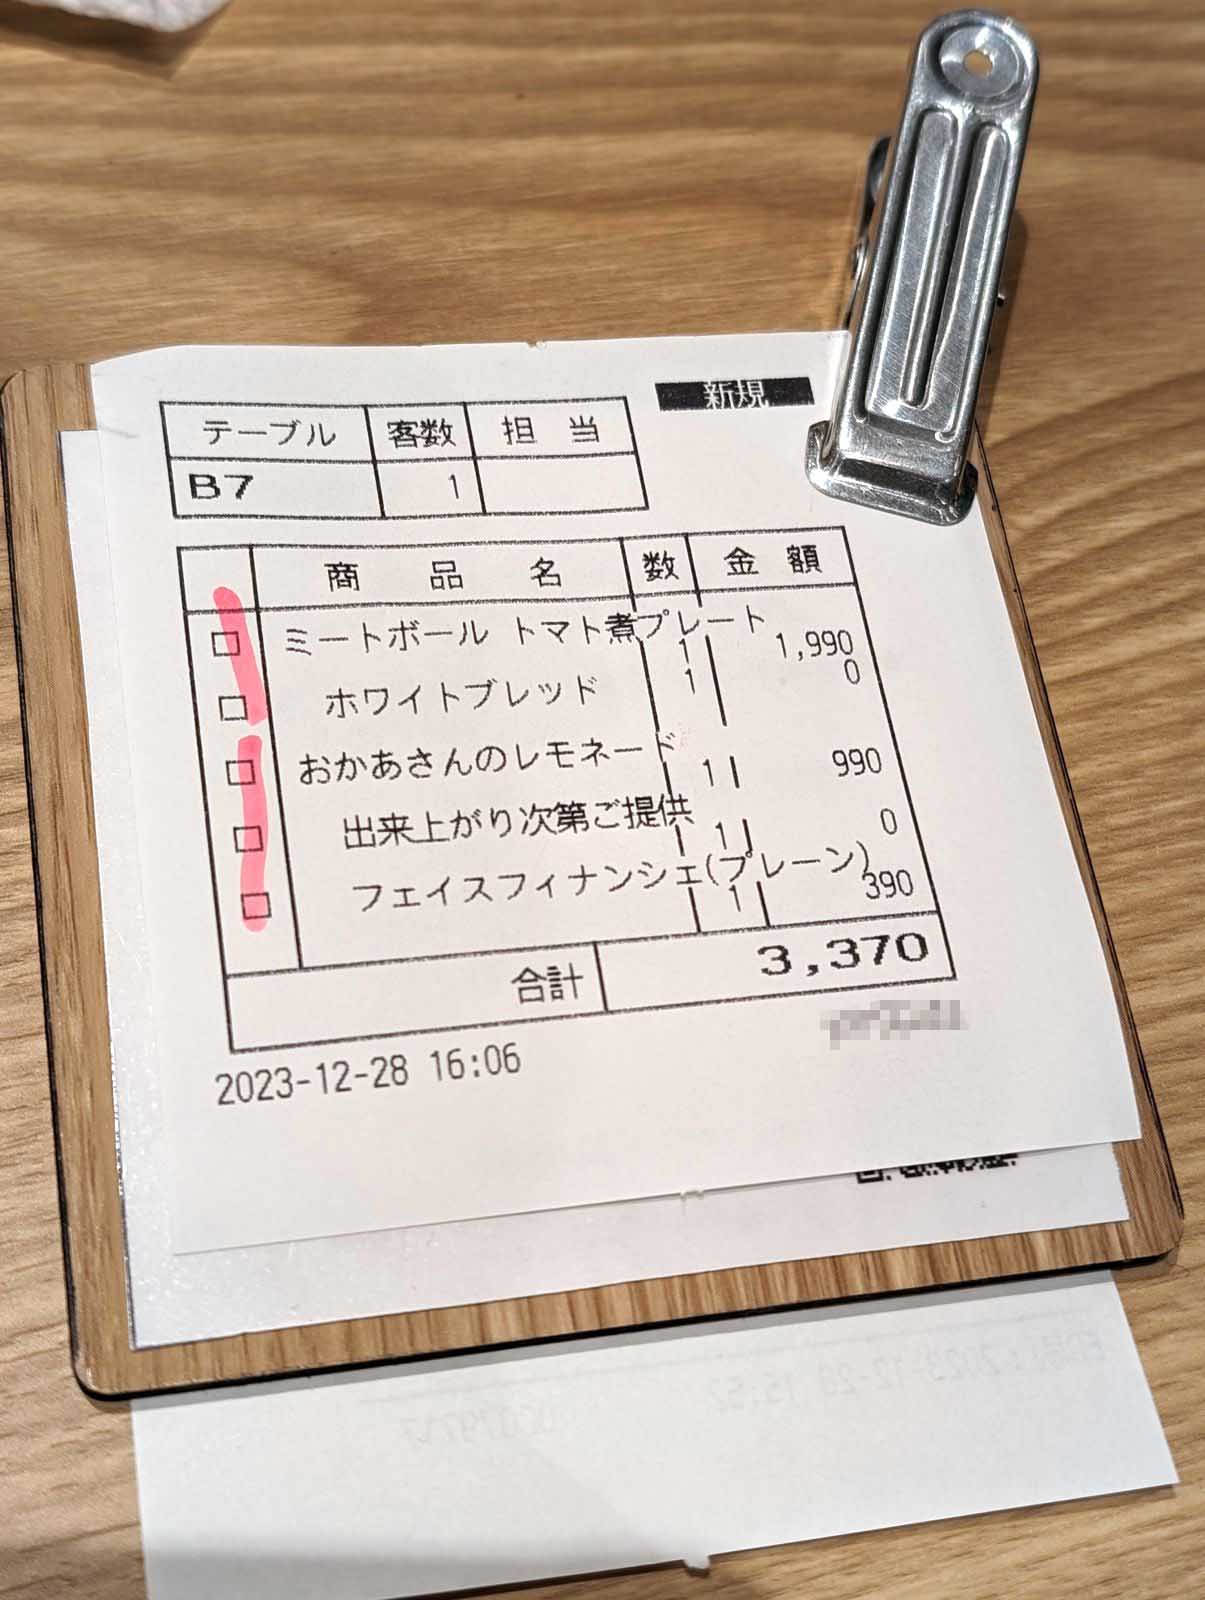 新規
テーブル 客数 担 当
B7 1
商 品 名 数 金 額
□ ミートボール トマト煮プレート
1 1,990
□ ホワイトブレッド 1 0
□ おかあさんのレモネード
1 990
□ 出来上がり次第ご提供
1 0
□ フェイスフィナンシェ(プレーン)
1 390
合計 3,370
2023-12-28 16:06